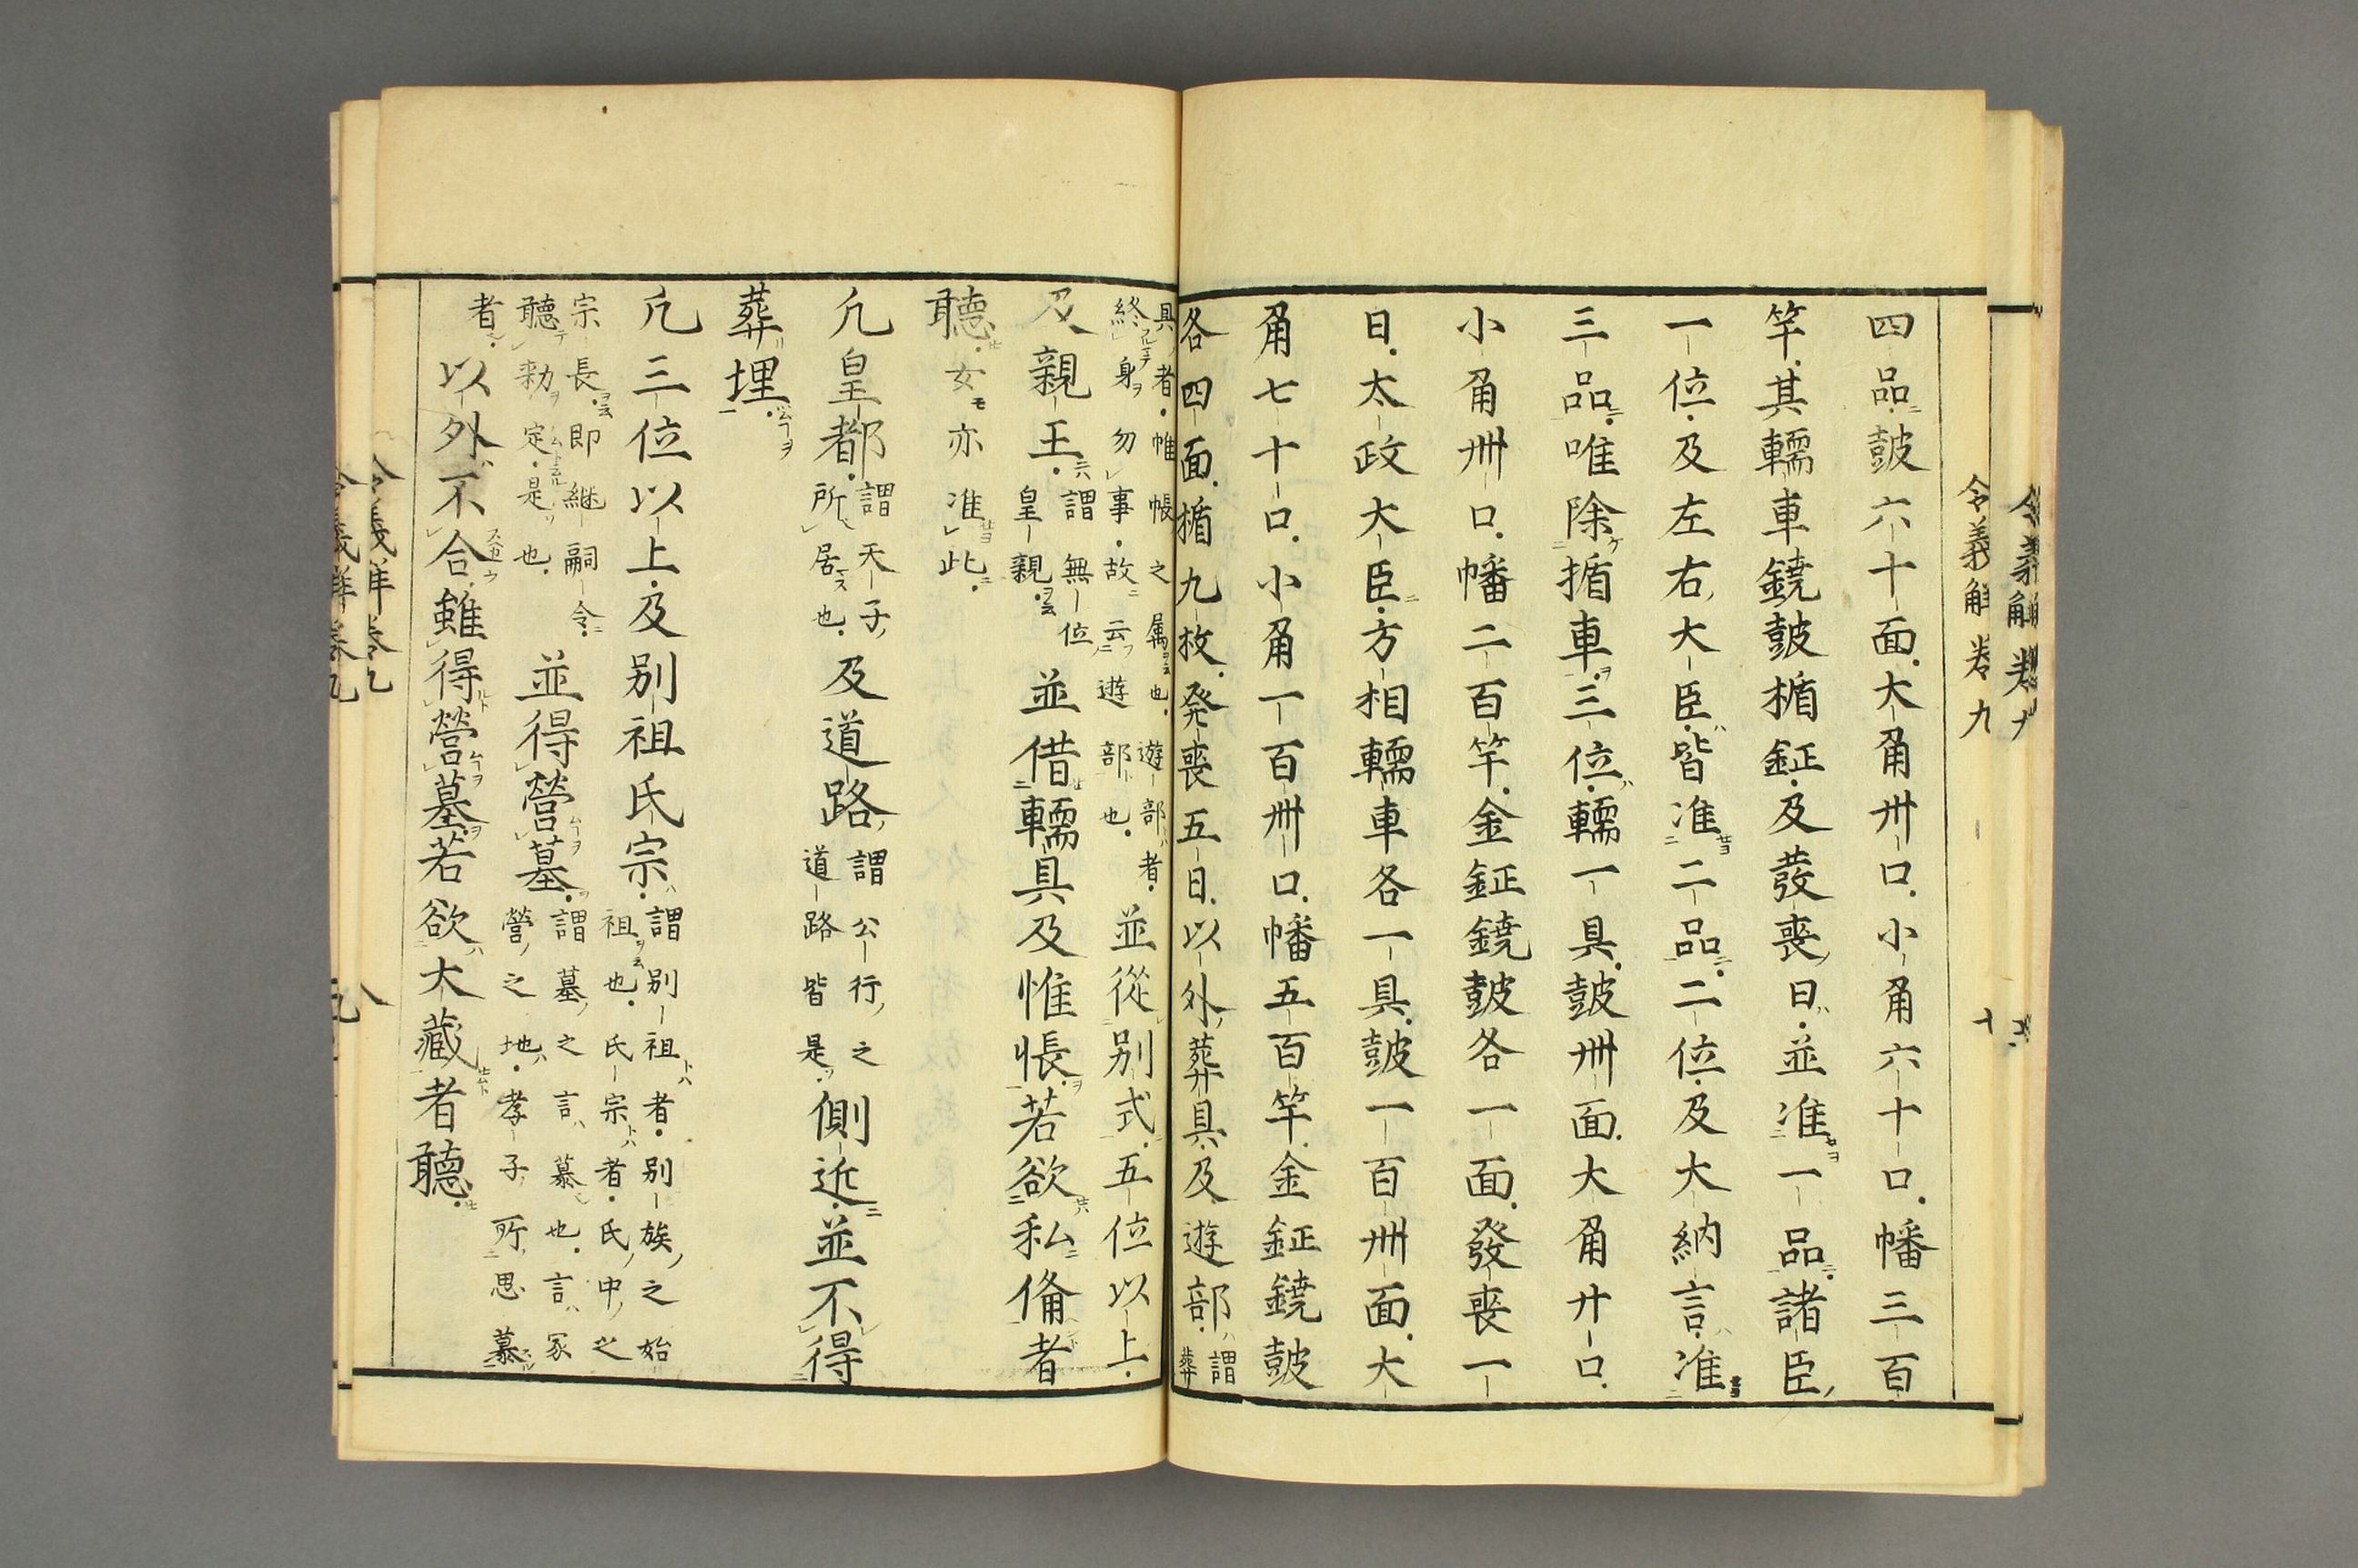 四品鼓六十面大角卅口小角六十口幡三百
竿其轜車鐃鼓楯鉦及發喪日並准一品諸臣
一位及左右大臣皆准二品二位及大納言准
三品唯除楯車三位轜一具鼓卌面大角廿口
小角卌口幡二百竿金鉦鐃鼓各一面發喪一
日太政大臣方相轜車各一具鼓一百卌面大
角七十口小角一百卌口幡五百竿金鉦鐃鼓
各四面楯九枚発喪五日以外葬具及遊部謂
葬
具者帷帳之属也遊部者
終身勿事故云遊部也
並從別式五位以上
及親王
謂無位
皇親
並借轜具及帷帳若欲私俻者
聽女亦准此
凢皇都
謂天子
所居也
及道路
謂公行之
道路皆是
側近並不得
葬埋
凢三位以上及別祖氏宗
謂別祖者別族之始
祖也氏宗者氏中之
宗長即継嗣令
聽勅定是也
並得營墓
謂墓之言慕也言冢
營之地孝子所思慕
者
以外不合雖得營墓若欲大藏者聽
令義解卷九
十